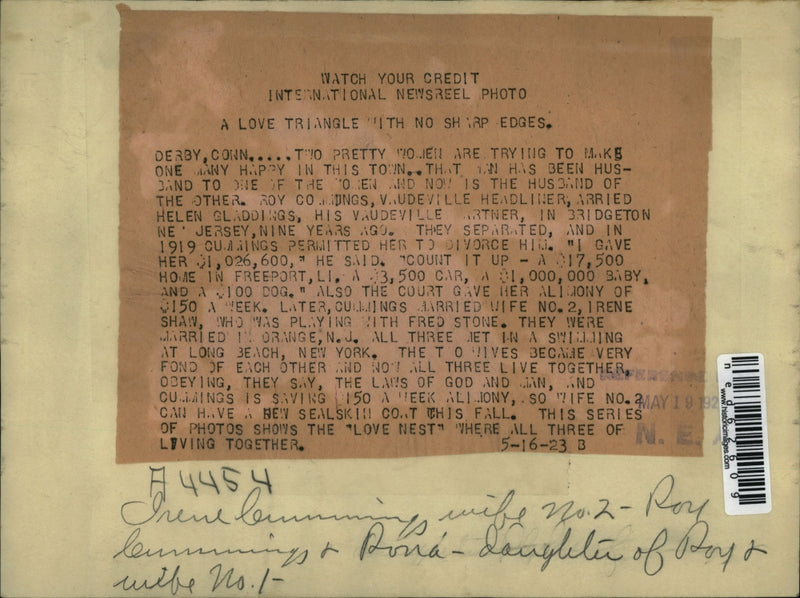 WATCH YOUR CREDIT
INTERNATIONAL NEWSREEL PHOTO
A LOVE TRIANGLE WITH NO SHARP EDGES.
DERBY, CONN.....TWO PRETTY WOMEN ARE TRYING TO MAKE
ONE MANY HAPPY IN THIS TOWN..THAT MAN HAS BEEN HUS-
BAND TO ONE OF THE WOMEN AND NOW IS THE HUSBAND OF
THE OTHER. ROY CUMMINGS, VAUDEVILLE HEADLINER, MARRIED
HELEN GLADDINGS, HIS VAUDEVILLE PARTNER, IN BRIDGETON
NEW JERSEY, NINE YEARS AGO. THEY SEPARATED, AND IN
1919 CUMMINGS PERMITTED HER TO DIVORCE HIM. "I GAVE
HER $1,026,600," HE SAID. "COUNT IT UP - A $17,500
HOME IN FREEPORT, LI. A $3,500 CAR, A $1,000,000 BABY,
AND A $100 DOG." ALSO THE COURT GAVE HER ALIMONY OF
$150 A WEEK. LATER, CUMMINGS MARRIED WIFE NO.2, IRENE
SHAW, WHO WAS PLAYING WITH FRED STONE. THEY WERE
MARRIED IN ORANGE, N.J. ALL THREE MET IN A SWIMMING
AT LONG BEACH, NEW YORK. THE TWO WIVES BECAME VERY
FOND OF EACH OTHER AND NOW ALL THREE LIVE TOGETHER,
OBEYING, THEY SAY, THE LAWS OF GOD AND MAN, AND
CUMMINGS IS SAVING $150 A WEEK ALIMONY, SO WIFE NO.2
CAN HAVE A NEW SEALSKIN COAT THIS FALL. THIS SERIES
OF PHOTOS SHOWS THE "LOVE NEST" WHERE ALL THREE OF
LIVING TOGETHER. 5-16-23 B
REFERENCE
MAY 19 192
N. E. A.
www.historicimages.com
ned62609
A4454
Irene Cummings wife No. 2 - Roy
Cummings & - daughter of Roy &
wife No. 1-